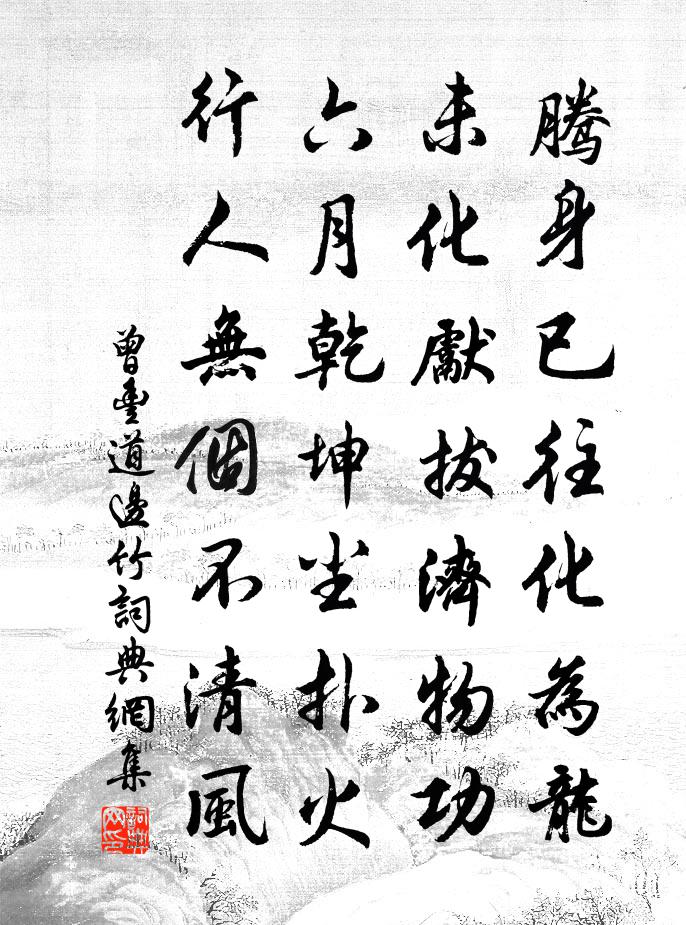 騰身已往化為龍
未化獻拔濟物功
六月乾坤尘扑火
行人無個不清風
曾豐道邊竹詞典網集